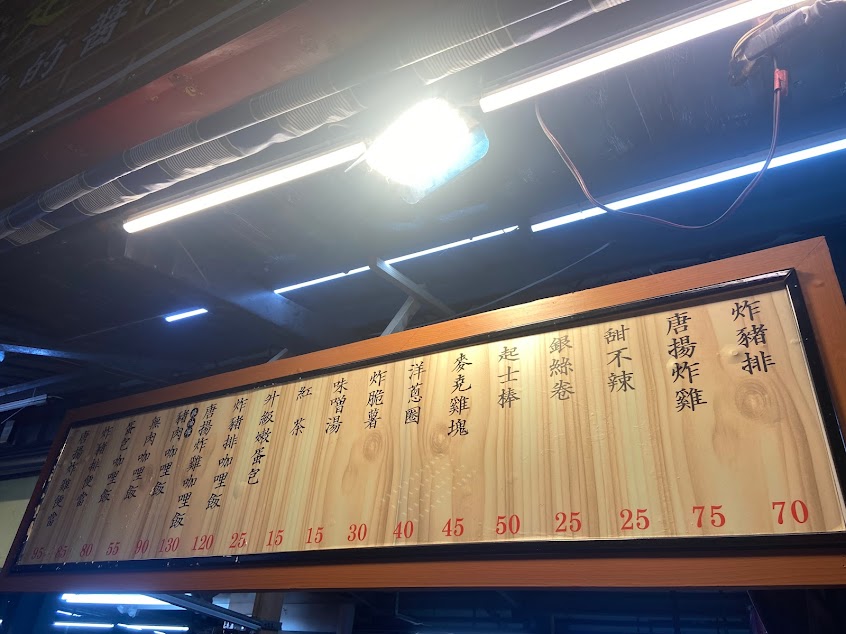 的醬
炸豬排 70
唐揚炸雞 75
甜不辣 25
銀絲卷 25
起士棒 50
麥堯雞塊 45
洋蔥圈 40
炸脆薯 30
味噌湯 15
紅茶 15
升級嫩蛋包 25
炸豬排咖哩飯 120
唐揚炸雞咖哩飯 130
豬肉咖哩飯 90
無肉咖哩飯 55
蛋包咖哩飯 80
炸豬排便當 85
唐揚炸雞便當 95